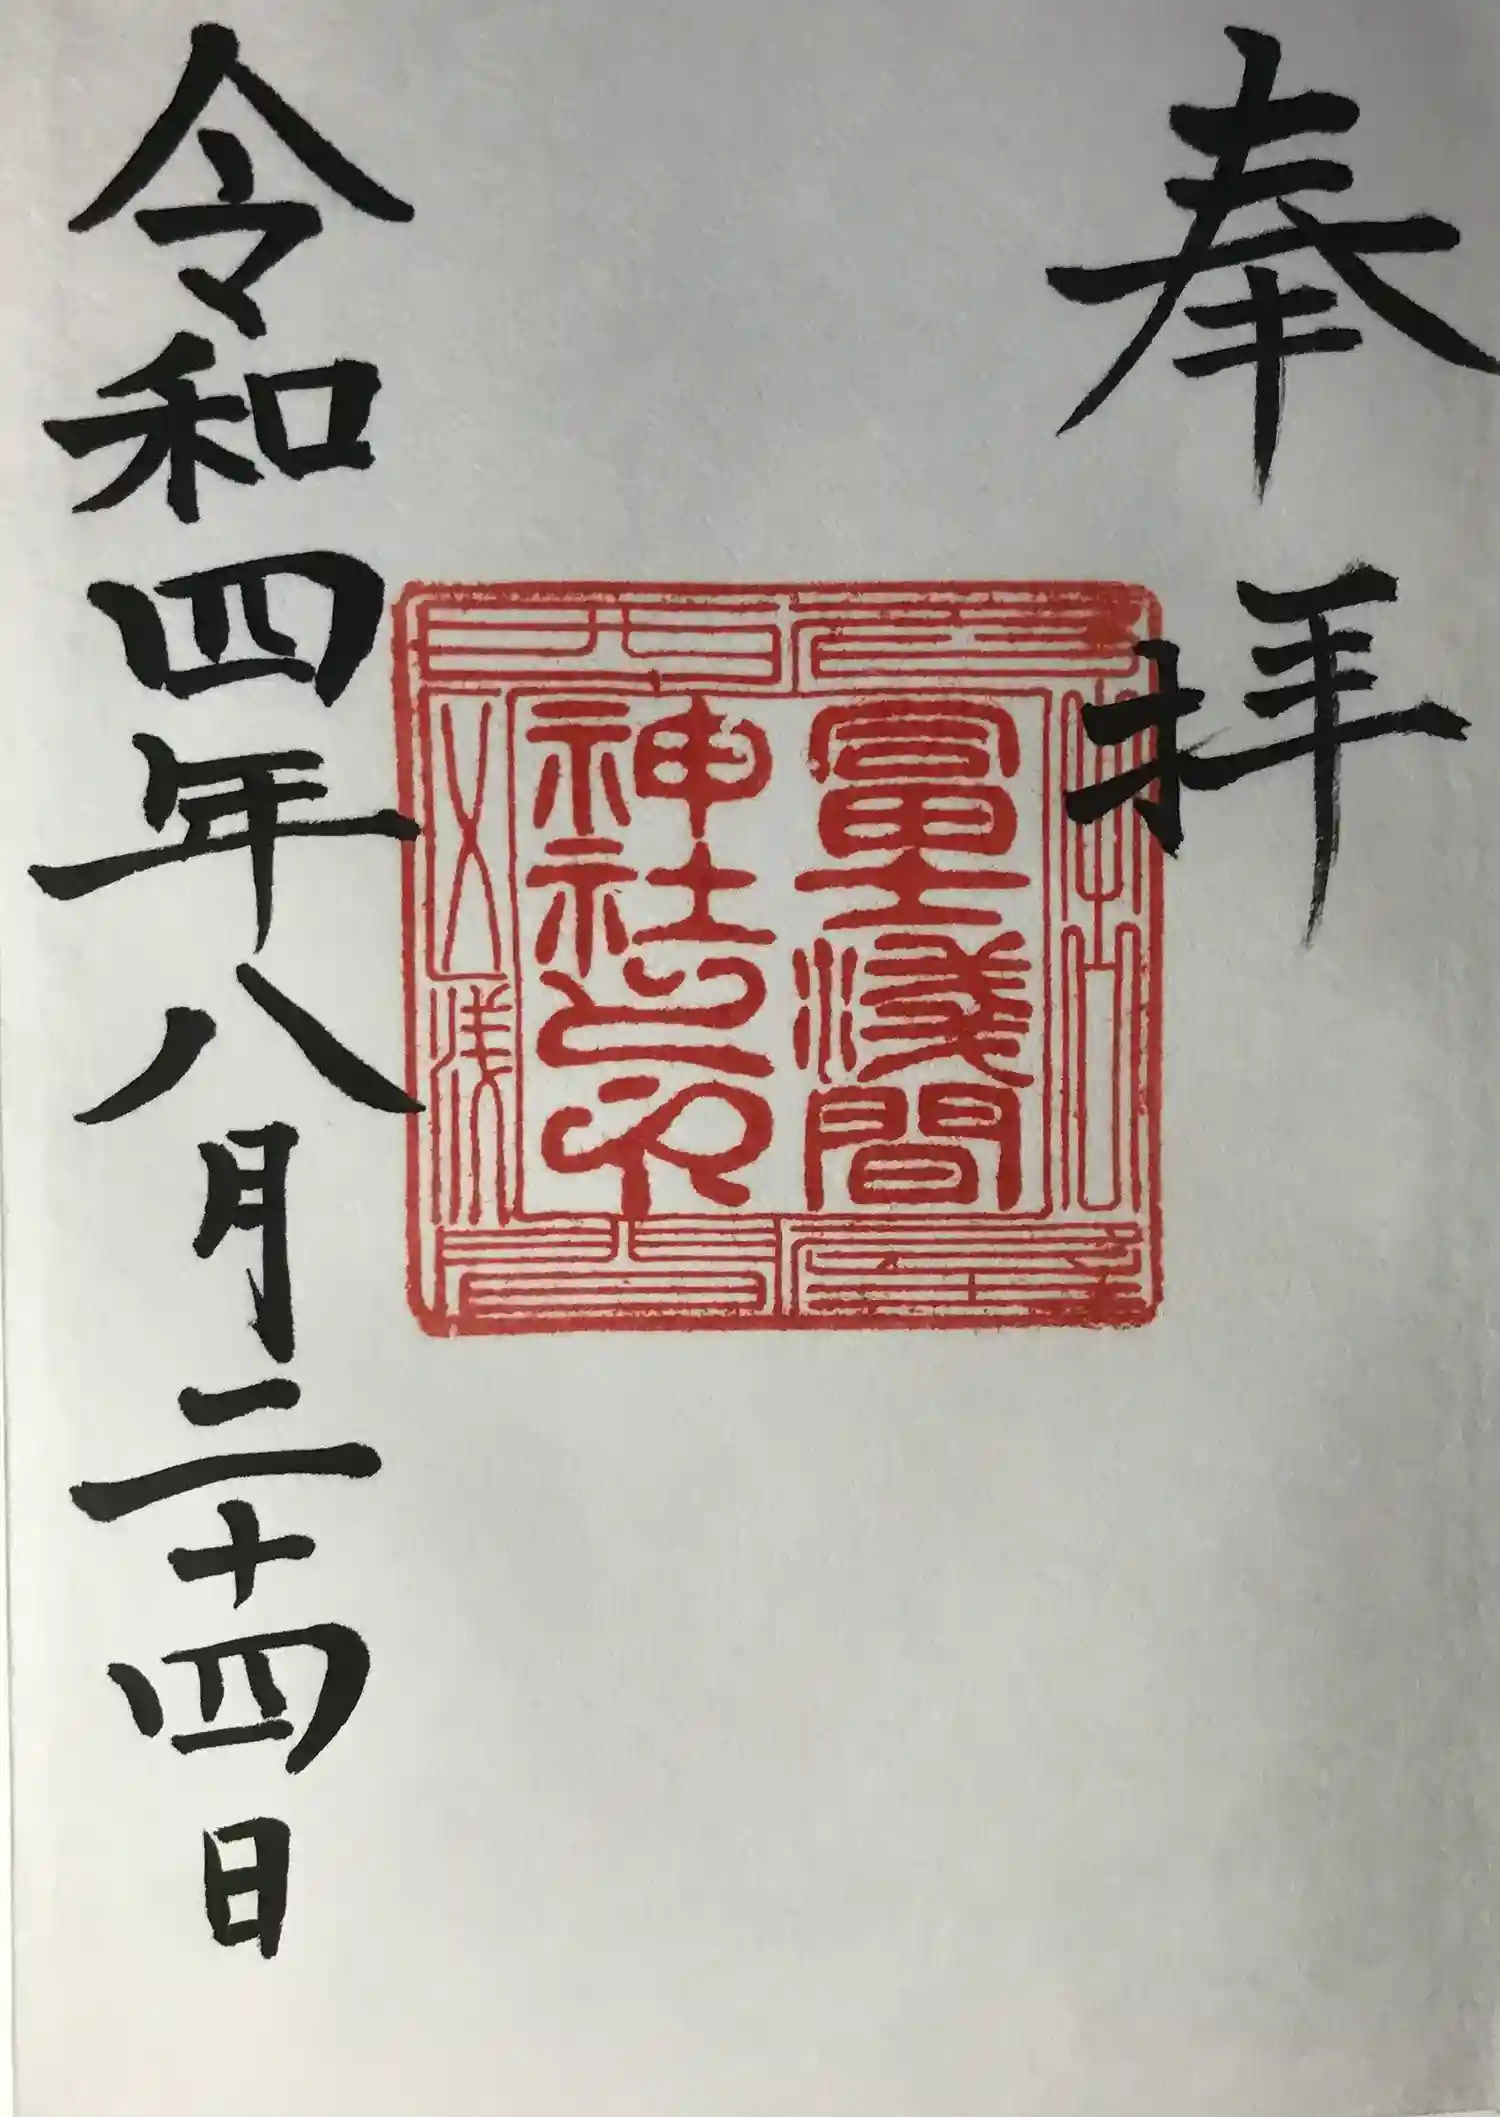 奉拝
富士浅間
神社之印
令和四年八月二十四日